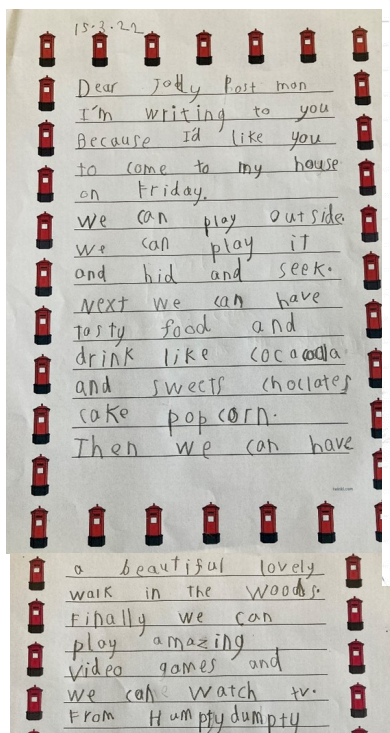 15.3.22
Dear Jolly Post man
I'm writing to you
Because I'd like you
to come to my house
on Friday.
We can play outside.
We can play it
and hid and seek.
Next we can have
tasty food and
drink like cocacola
and sweets choclates
cake popcorn.
Then we can have
a beautiful lovely
walk in the woods.
Finally we can
play amazing
video games and
we can watch tv.
From Humptydumpty